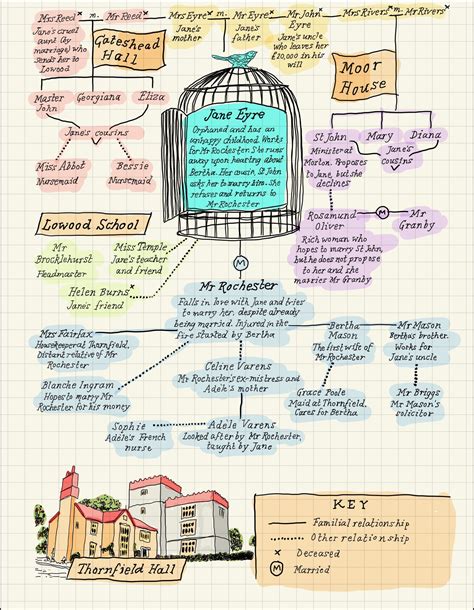 Mrs Reed × m. Mr Reed ×
Mrs Eyre × m. Mr Eyre ×
Mr John × Eyre
Mrs Rivers × m. Mr Rivers ×
Jane's cruel
aunt (by
marriage) who
sends her to
Lowood
Gateshead
Hall
Jane's
mother
Jane's
father
Jane's uncle
who leaves her
£20,000 in his
will
Moor
House
Master
John
Georgiana
Eliza
Jane's cousins
Miss Abbot
Nursemaid
Bessie
Nursemaid
Jane Eyre
Orphaned and has an
unhappy childhood. Works
for Mr Rochester. She runs
away upon hearing about
Bertha. Her cousin, St John
asks her to marry him. She
refuses and returns to
Mr Rochester
St John
Mary
Diana
Minister at
Morton. Proposes
to Jane, but she
declines
Jane's
cousins
Rosamund
Oliver
M
Mr
Granby
Rich woman who
hopes to marry
St John, but he
does not propose
to her and she
marries Mr Granby
Lowood School
Mr
Brocklehurst
Headmaster
Miss Temple
Jane's teacher
and friend
Helen Burns ×
Jane's friend
M
Mr Rochester
Falls in love with Jane and tries
to marry her, despite already
being married. Injured in the
fire started by Bertha
Mrs Fairfax
Housekeeper at Thornfield,
Distant relative of Mr
Rochester
Bertha ×
Mason
The first wife of
Mr Rochester
Mr Mason
Bertha's brother.
Works for
Jane's uncle
Blanche Ingram
Hopes to marry Mr
Rochester for his money
Celine Varens
Mr Rochester's ex-mistress and
Adele's mother
Grace Poole
Maid at Thornfield,
Cares for Bertha
Mr Briggs
Mr Mason's
solicitor
Sophie
Adèle's French
nurse
Adèle Varens
Looked after by Mr Rochester,
taught by Jane
Thornfield Hall
KEY
Familial relationship
Other relationship
× Deceased
M Married